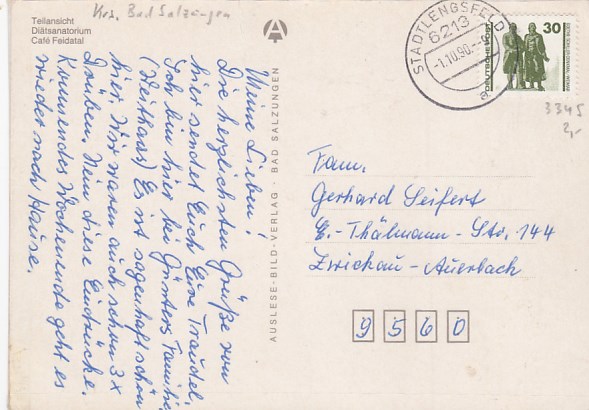 Teilansicht
Diätsanatorium
Café Feidatal
Krs. Bad Salzungen
Meine Lieben!
Die herzlichsten Grüße von
hier sendet Euch Eure Traudel.
Ich bin hier bei Günters Familie
Es ist sagenhaft schön
hier. Wir waren auch schon 3 x
Drüben. Nein diese Eindrücke.
Kommendes Wochenende geht es
wieder nach Hause.
AUSLESE-BILD-VERLAG · BAD SALZUNGEN
STADTLENGSFELD
6213
-1.10.90.--
a
DEUTSCHE POST
30
3345
2,-
Fam.
Gerhard Seifert
E.-Thälmann-Str. 144
Zwickau-Auerbach
9560